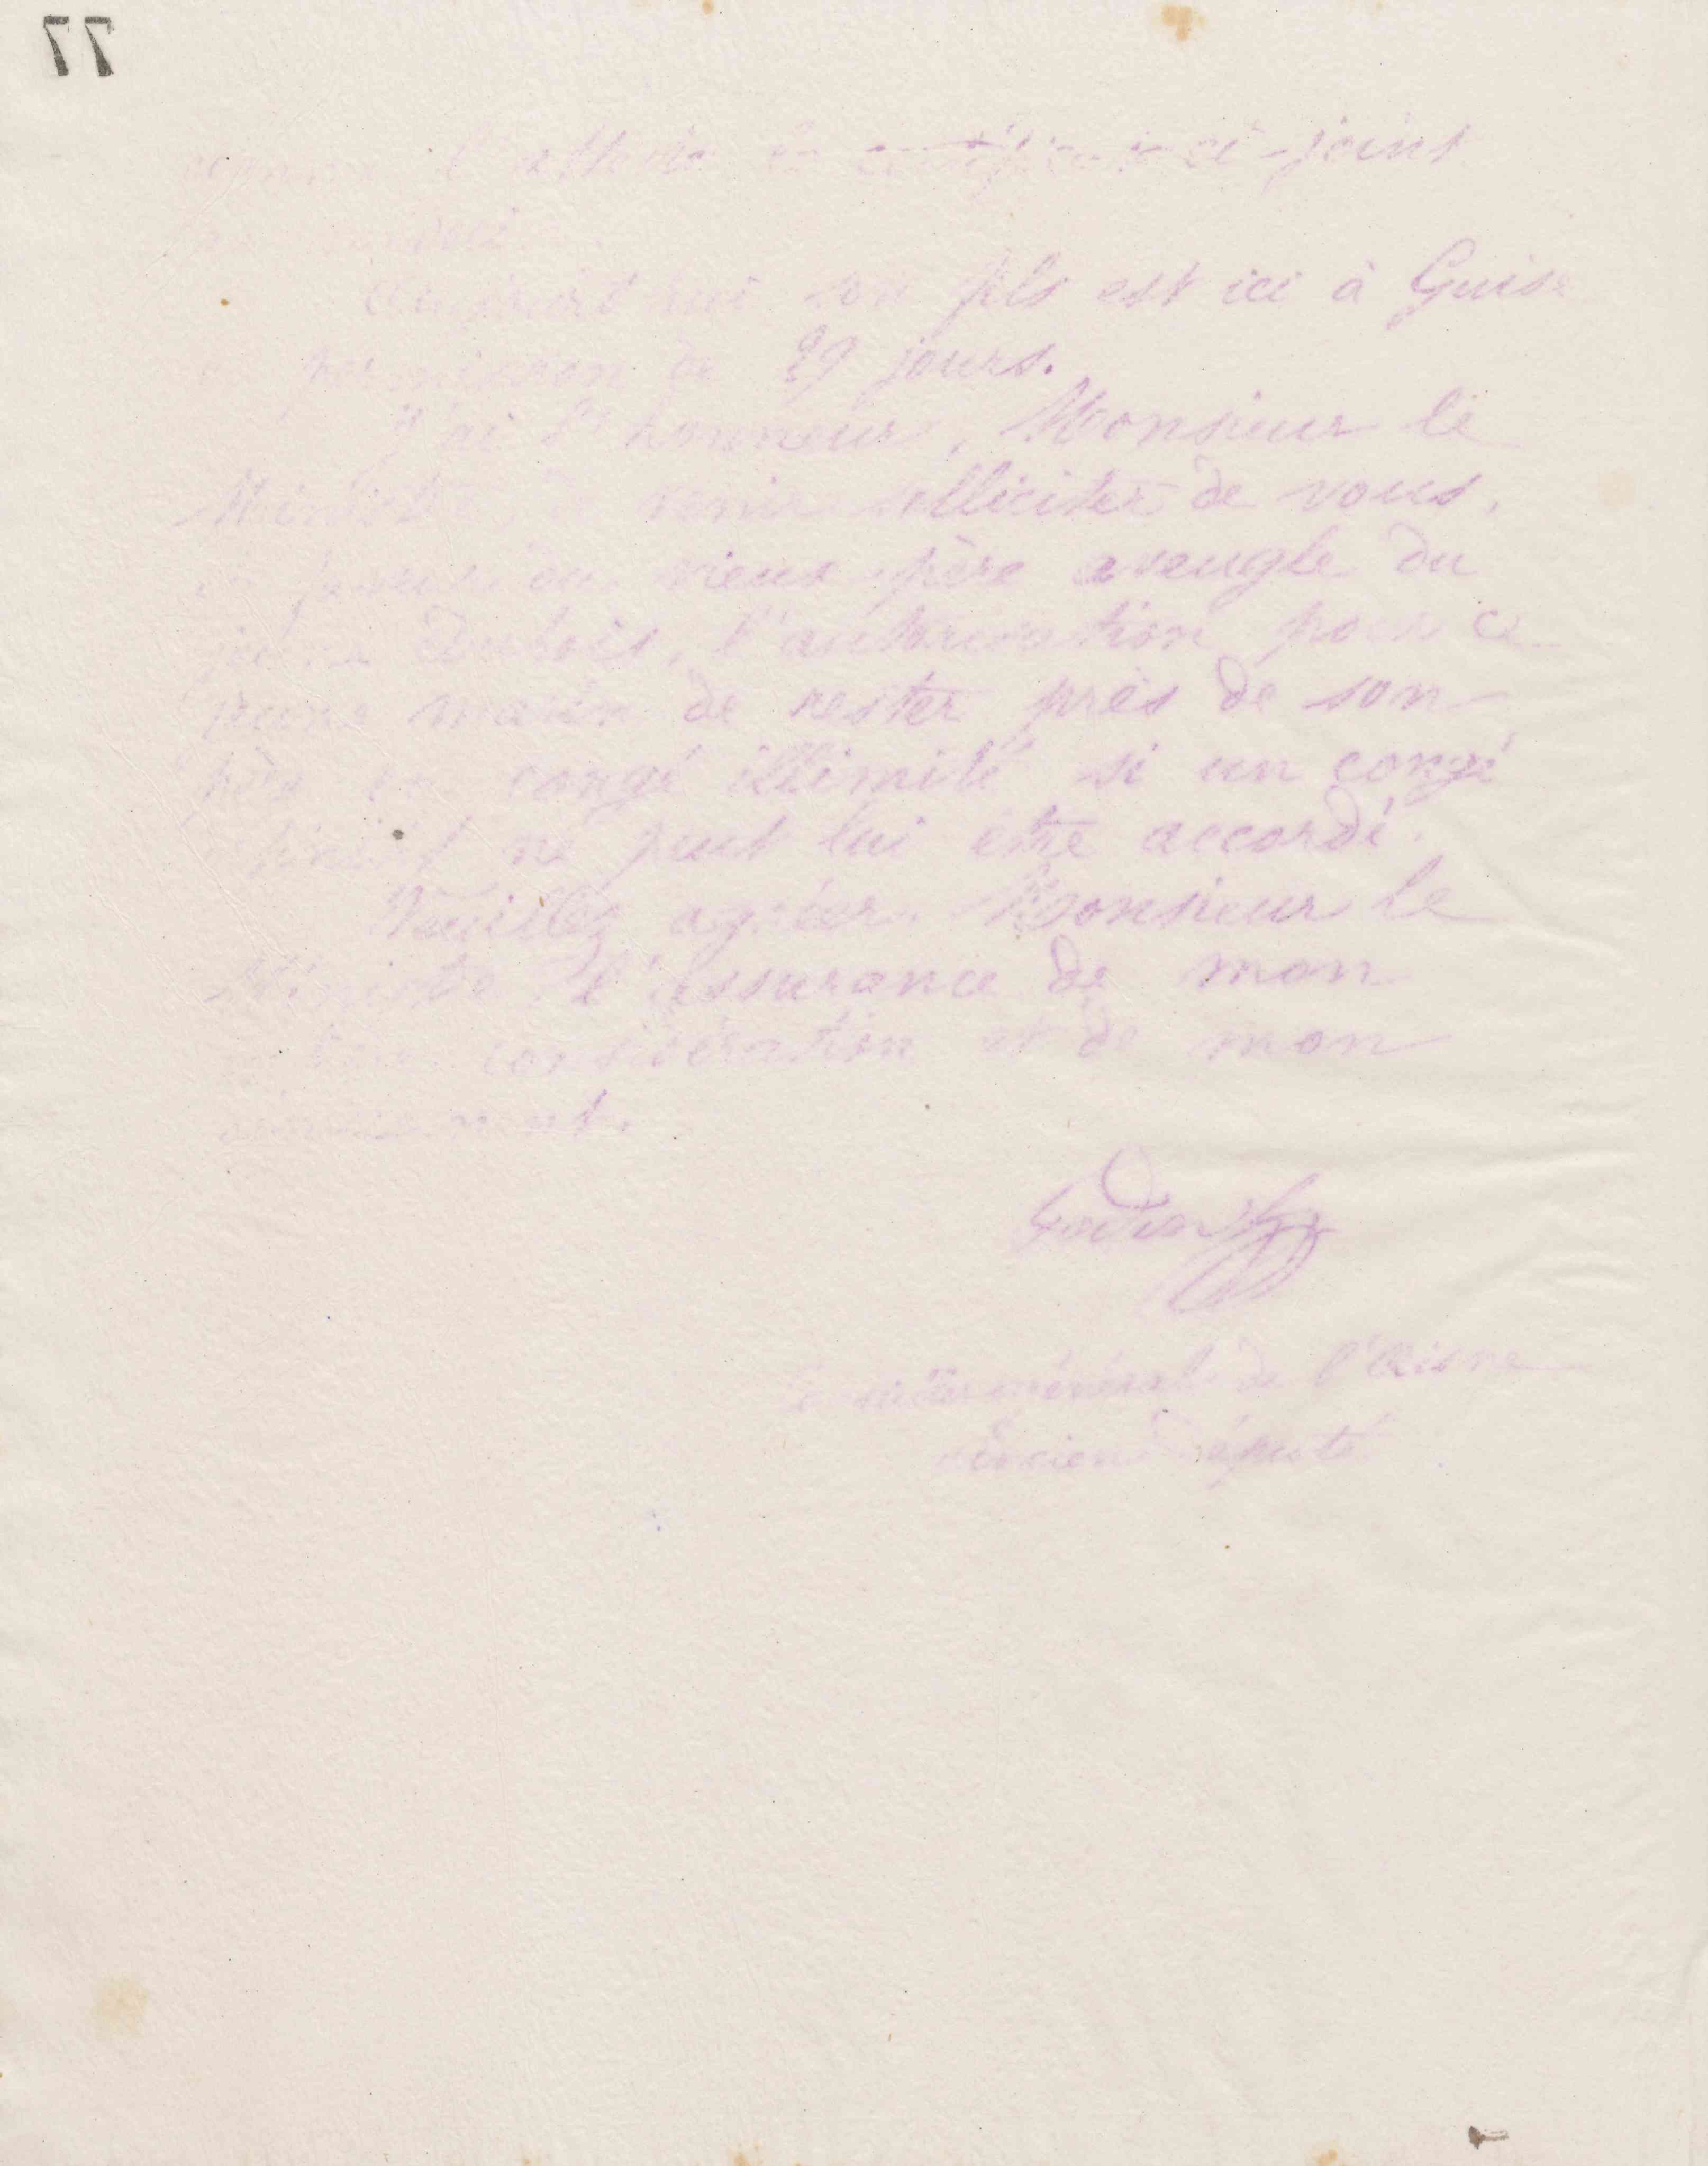 77
l'atteste le ci-joint
Aujourd'hui son fils est ici à Guise
en permission de 29 jours.
J'ai l'honneur, Monsieur le
Ministre, de venir solliciter de vous,
en faveur du vieux père aveugle du
jeune Dubois, l'autorisation pour ce
jeune marin de rester près de son
père en congé illimité si un congé
ne peut lui être accordé.
Veuillez agréer, Monsieur le
Ministre, l'assurance de mon
considération et de mon
Godin
Conseiller général de l'Aisne
ancien député